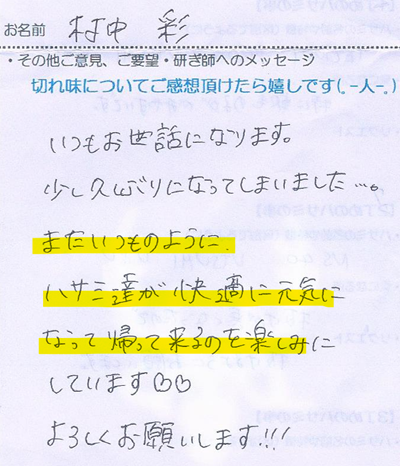 お名前 村中 彩
・その他ご意見、ご要望・研ぎ師へのメッセージ
切れ味についてご感想頂けたら嬉しです(｡-人-｡)
いつもお世話になります。
少し久しぶりになってしまいました…。
またいつものように
ハサミ達が快適に元気に
なって帰って来るのを楽しみに
しています♡♡
よろしくお願いします!!!